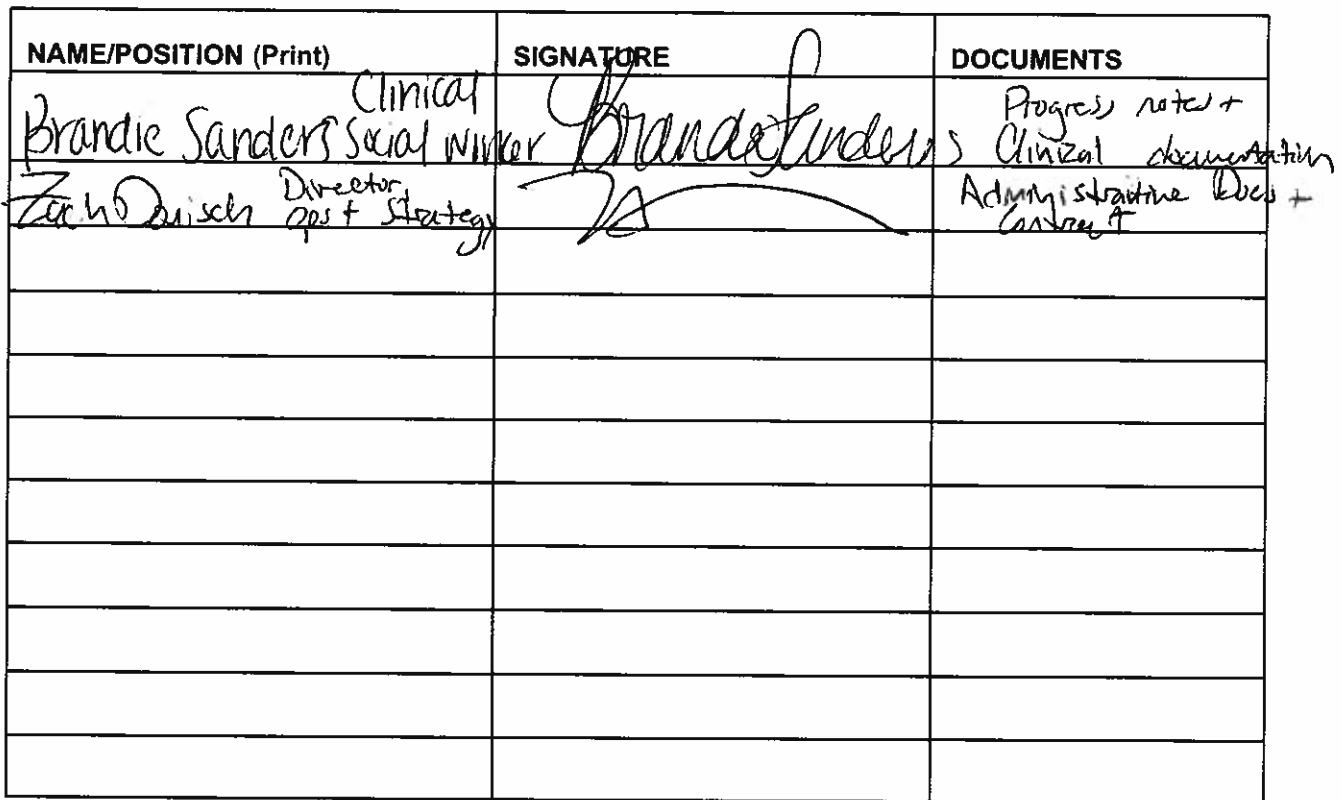 NAME/POSITION (Print) SIGNATURE DOCUMENTS
Clinical
Brandie Sanders Social Worker Brandie Sanders Progress notes +
Clinical documentation
Zach Director,
ops + Strategy Administrative Docs +
Contract